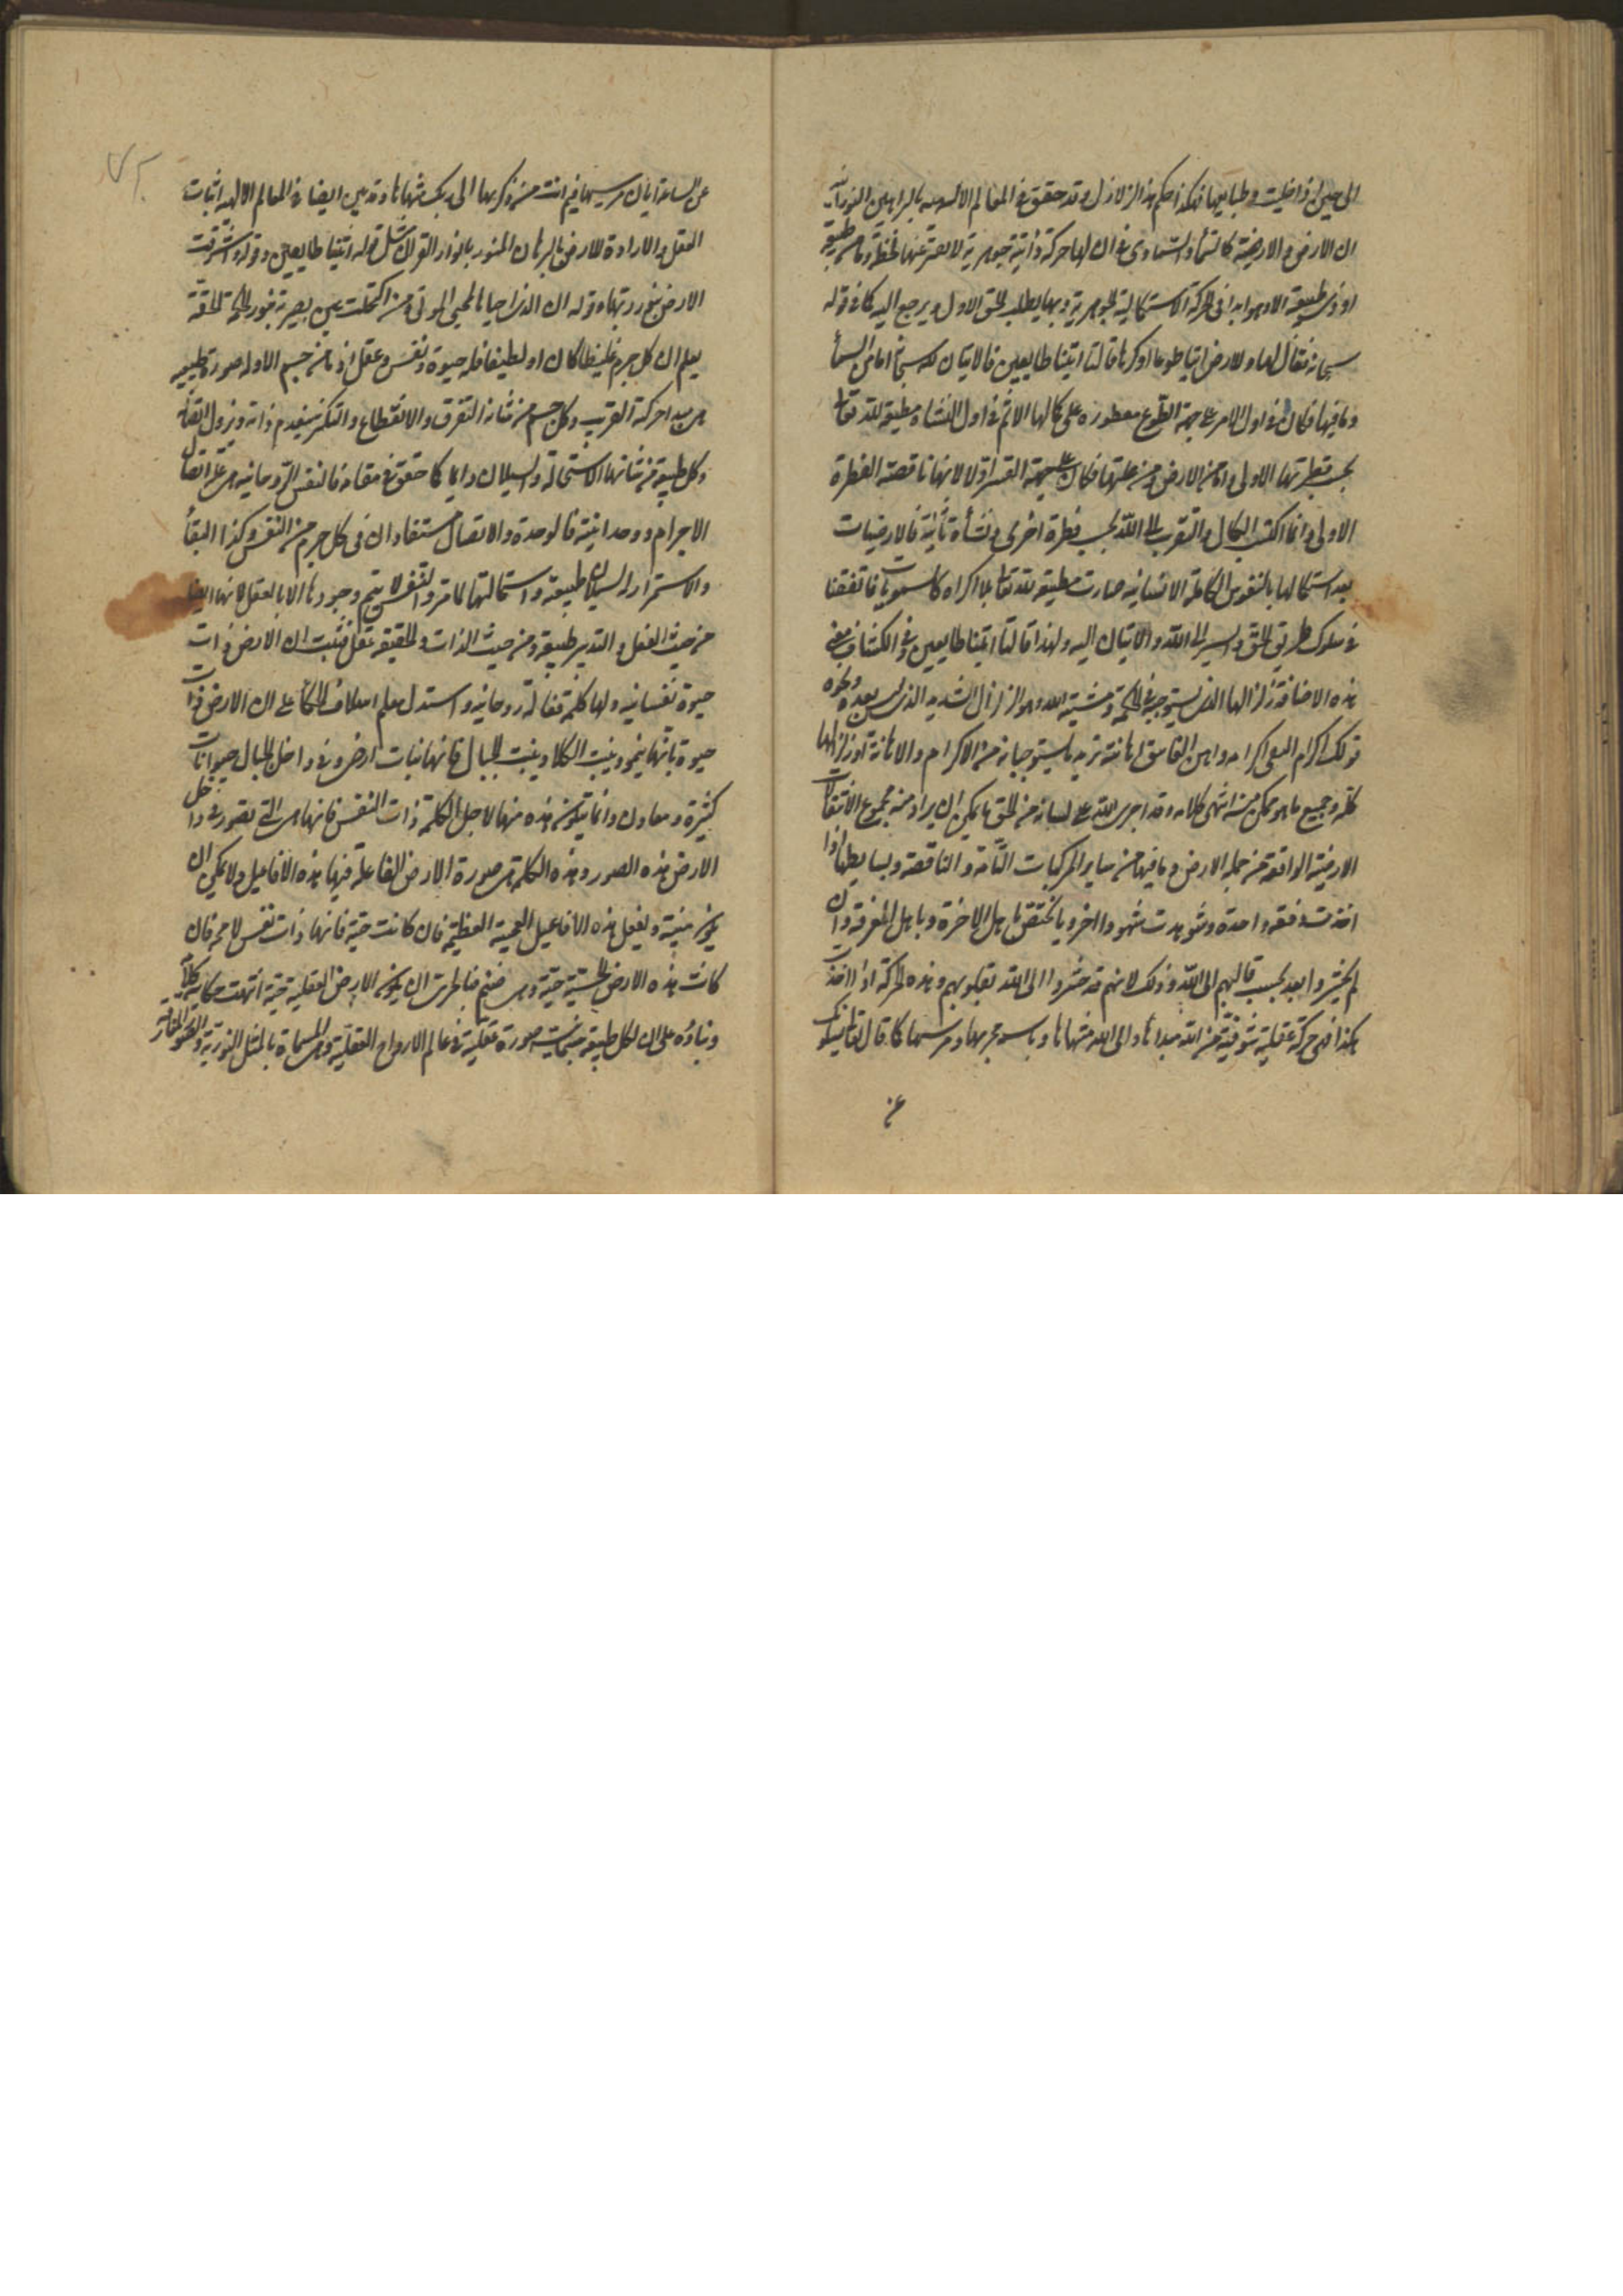 ان الارض و الارضية كالسماء و السماوى فى ان لها حركة ذاتية جوهرية لا يعتر عنها لحظة و ما من طبيعة
او ذى طبيعة الا و هو ابدا فى الحركة الاستكمالية الجوهرية و بها يطلب الحق الاول و يرجع اليه كما فى قوله
سبحانه فقال لها و للارض ائتيا طوعا او كرها قالتا اتينا طايعين فالاتيان له سبحانه اما من السماء
و ما فيها فكان فى اول الامر على جهة الطوع مفطوره على كمالها الاتم فى اول النشاة مطيعة لله تعالى
بحسب فطرتها الاولى و اما من الارض و من عليها فكان على جهة القسر اولا لانها ناقصة الفطرة
الاولى و انما اكتسب الكمال و التقرب الى الله بحسب فطرة اخرى و نشأة ثانية فالارضيات
بعد استكمالها بالنفوس الكاملة الانسانيه صارت مطيعة لله تعالى بلا اكراه كالسمويات فاتفقتا
فى سلوك طريق الحق و السير الى الله و الاتيان اليه و لهذا قالتا اتينا طايعين و فى الكشاف معنى
هذه الاضافة زلزالها الذى يستوجبه فى الحكمة و مشية الله و هو الزلزال الشديد الذى ليس بعده و نحوه
قولك اكرم التقى اكرامه و اهن الفاسق اهانته تريد ما يستوجبانه من الاكرام و الاهانة او زلزالها
كله و جميع ما هو ممكن منه انتهى كلامه و قد اجرى الله على لسانه من الحق ما يمكن ان يراد منه مجموع الانتقالات
الارضية الواقعة من جملة الارض و ما فيها من ساير المركبات التامة و الناقصة و بسايطها اذا
اخذت دفعة واحدة و شوهدت شهودا اخرويا يختص باهل الاخرة و باهل المعرفة و ان
لم يحشروا بعد بحسب قالبهم الى الله و ذلك لانهم قد حشروا الى الله بقلوبهم و هذه الحركة اذا اخذت
هكذا فهى حركة عقلية شوقية من الله مبدأها و الى الله منتهاها و باسمه مجريها و مرسيها كما قال تعالى يسئلونك
عن
عن الساعة ايان مرسيها فيم انت من ذكريها الى ربك منتهاها و قد بين ايضا فى المعالم الالهية اثبات
العقل و الارادة للارض بالبرهان المنور بانوار القران مثل قوله اتينا طايعين و قوله و اشرقت
الارض بنور ربها و قوله ان الذى احياها لمحيى الموتى و من اكتحلت عين بصيرته بنور الحكمة الحقة
يعلم ان كل جرم غليظا كان او لطيفا فله حيوة و نفس و عقل اذ ما من جسم الا و له صورة طبيعية
هى مبدا حركة القريب و كل جسم من شانه التفرق و الانقطاع و التكثر فينعدم ذاته و يزول اتصاله
و كل طبيعة من شانها الاستحالة و السيلان دايما كما حقق فى مقامه فالنفس الروحانيه هى علة اتصال
الاجرام و وحدانيته فالوحدة و الاتصال مستفادان فى كل جرم من النفس و كذا البقاء
و الاستمرار له لسيلان طبيعته و استحالتها كما مر و النفس لا يتم وجودها الا بالعقل لانها ايضا
من حيث الفعل و التدبير طبيعة و من حيث الذات و الحقيقة عقل فثبت ان الارض ذات
حيوة نفسانيه و لها كلمة فعالة روحانيه و استدل معلم اسلاف الحكماء على ان الارض ذات
حيوة بانها ينمو و ينبت الكلا و ينبت الجبال فانها نبات ارض و فى داخل الجبال حيوانات
كثيرة و معادن و انما يتكون هذه منها لاجل الكلمة ذات النفس فانها هى التى تصور فى داخل
الارض هذه الصور و هذه الكلمة هى صورة الارض الفاعلة فيها هذه الافاعيل و لا يمكن ان
يكون ميتة و يفعل هذه الافاعيل العجيبة العظيمة فان كانت حية فانها ذات نفس لا محه فان
كانت هذه الارض الحسية حية و هى صنم فبالحرى ان يكون الارض العقلية حية انتهت حكاية كلامه
و بناؤه على ان لكل طبيعة جسمانية صورة عقلية فى عالم الارواح العقلية و هى المسماة بالمثل النورية و الصور المفارقة